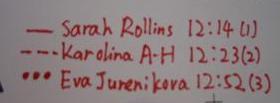 — Sarah Rollins 12:14 (1)
--- Karolina A-H 12:23 (2)
••• Eva Jurenikova 12:52 (3)